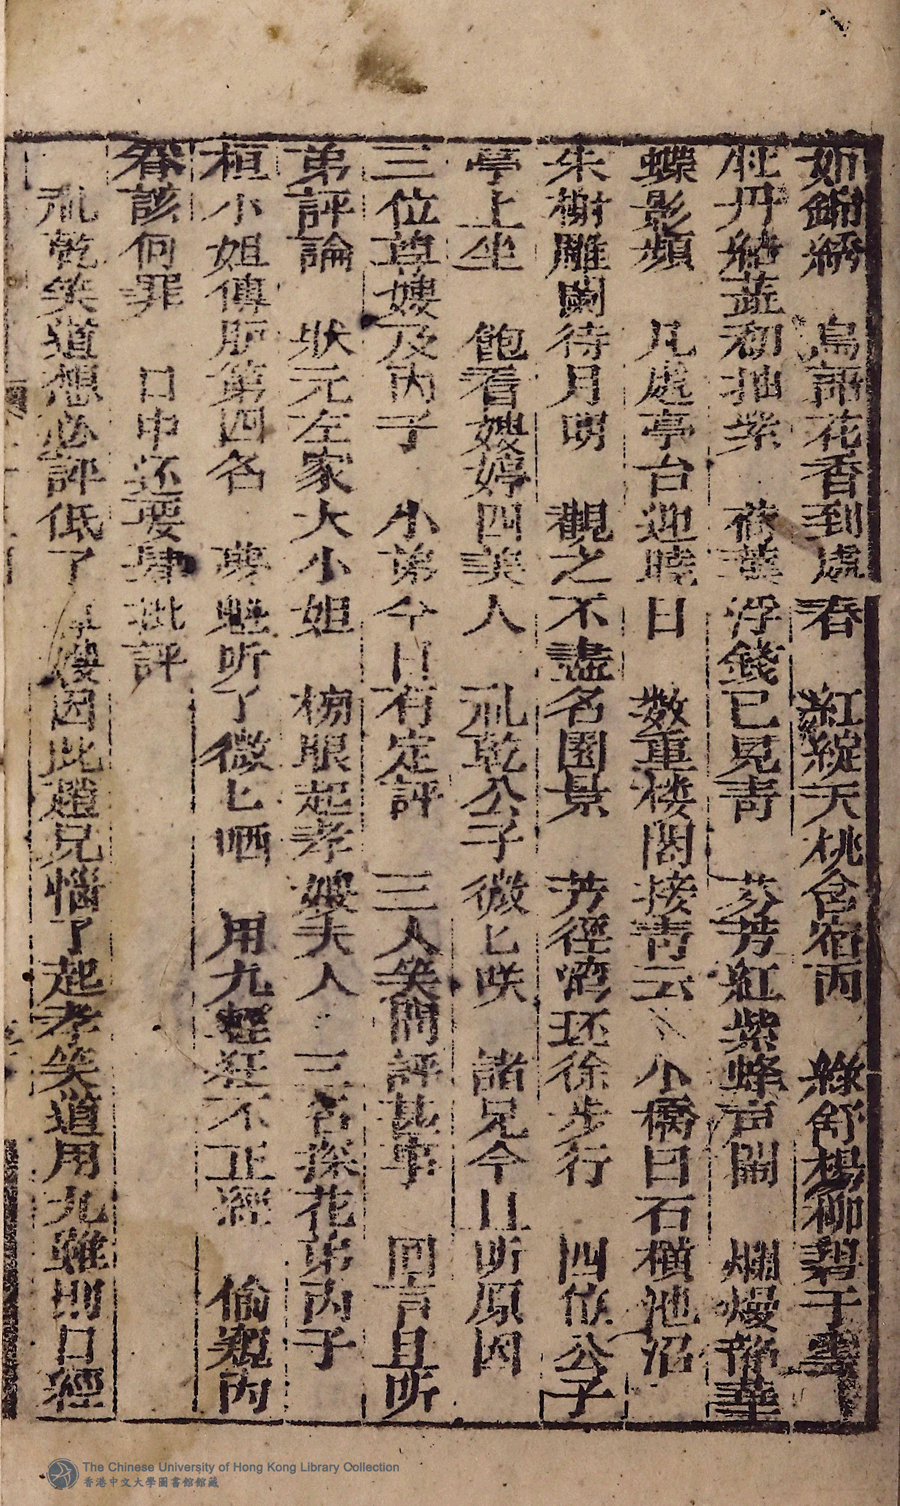 如錦綉　鳥語花香到處春　紅綻天桃含宿雨　綠舒楊柳碧于
牡丹　蕋初抽紫　荷葉浮錢已見青　芬芳紅紫蜂声鬧　爛熳　華
蝶影頻　凡處亭台迎曉日　数重楼閣接青云　小橋曰石横池沼
朱榭雕闌待月明　觀之不盡名園景　芳徑湾环徐步行　四位公子
亭上坐　飽看娉婷四美人　乩乾公子微匕咲　諸兄今日听原因
三位尊嫂及内子　小弟今日有定評　三人笑問評甚事　回言且听
弟評論　狀元左家大小姐　榜眼起孝嫂夫人　三名探花弟内子
桓小姐傳胪第四名　夢魁听了微匕哂　用九輕狂不正經　偷覌内
眷該何罪　口中还要肆批評
乩乾笑道想必評低了　嫂因此趙兄惱了起孝笑道用九雖則口經
The Chinese University of Hong Kong Library Collection
香港中文大學圖書館館藏